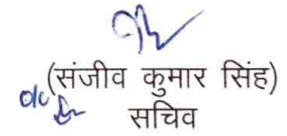 (संजीव कुमार सिंह)
o/c
सचिव